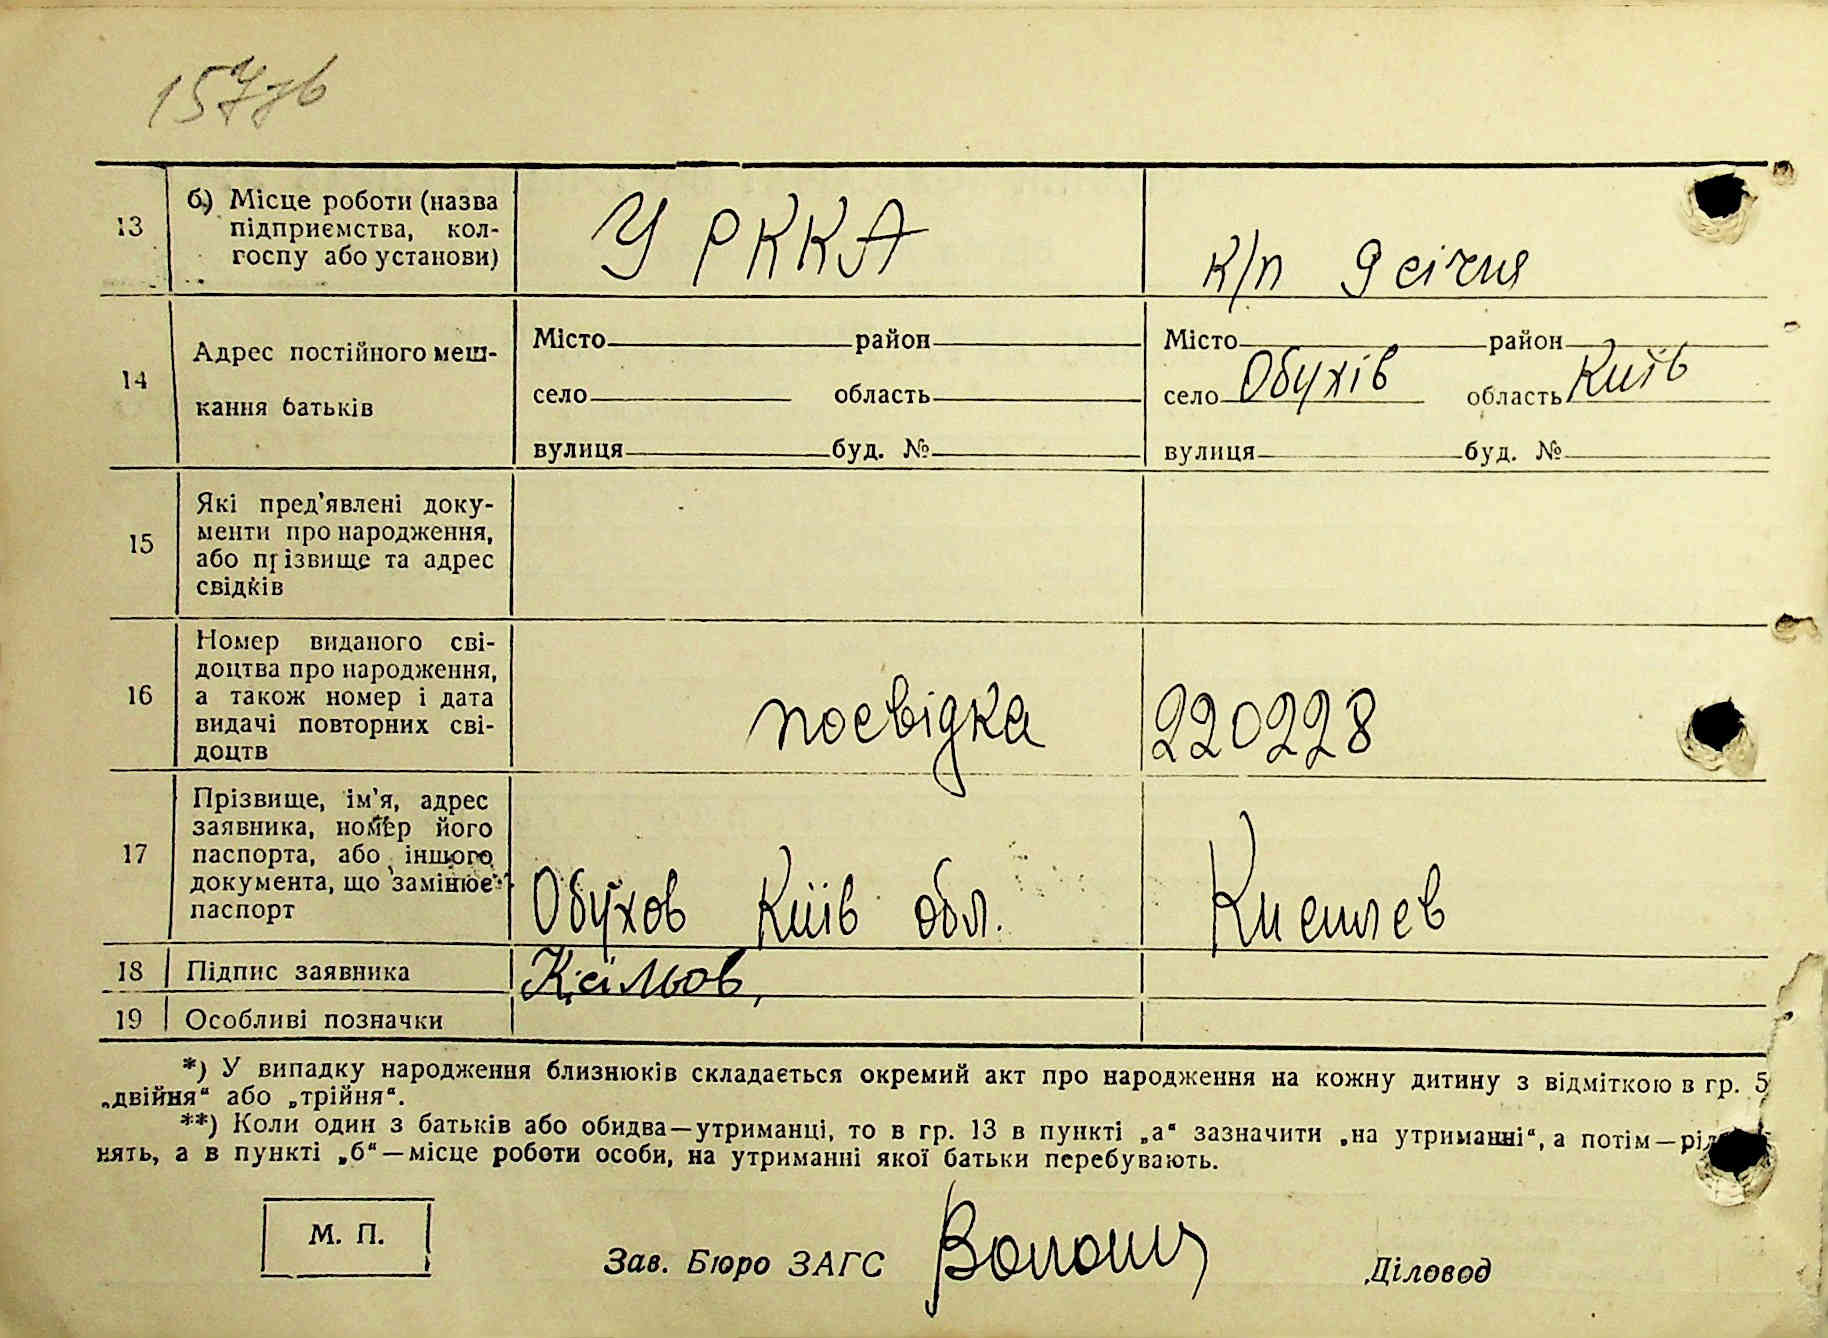 157зв
13 б) Місце роботи (назва
підприємства, кол-
госпу або установи)
У РККА
к/п 9 січня
14 Адрес постійного меш-
кання батьків
Місто район
село область
вулиця буд. №
Місто район
село Обухів область Київ
вулиця буд. №
15 Які пред'явлені доку-
менти про народження,
або прізвище та адрес
свідків
16 Номер виданого сві-
доцтва про народження,
а також номер і дата
видачі повторних сві-
доцтв
посвідка 220228
17 Прізвище, ім'я, адрес
заявника, номер його
паспорта, або іншого
документа, що замінює
паспорт
Обухов Київ обл.
18 Підпис заявника
19 Особливі позначки
*) У випадку народження близнюків складається окремий акт про народження на кожну дитину з відміткою в гр. 5
„двійня“ або „трійня“.
**) Коли один з батьків або обидва—утриманці, то в гр. 13 в пункті „а“ зазначити „на утриманні“, а потім—рід
нять, а в пункті „б“—місце роботи особи, на утриманні якої батьки перебувають.
М. П.
Зав. Бюро ЗАГС
Діловод